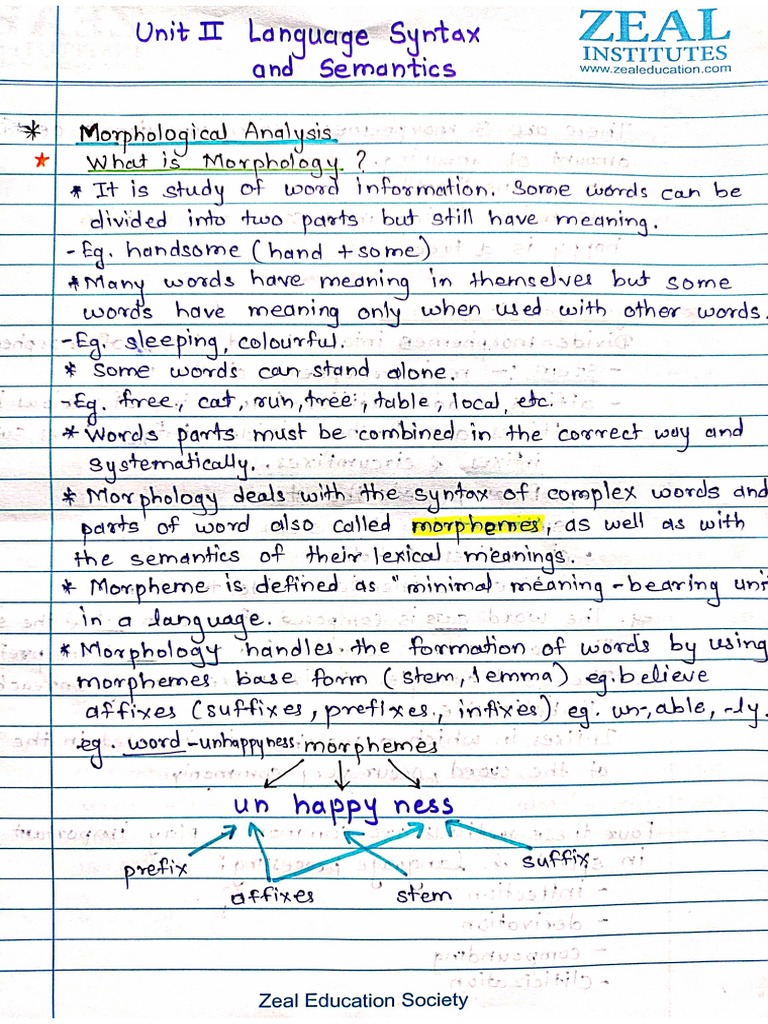 Unit II Language Syntax
and Semantics
ZEAL
INSTITUTES
www.zealeducation.com
* Morphological Analysis
* What is Morphology ?
* It is study of word information. Some words can be
divided into two parts but still have meaning.
- Eg. handsome (hand + some)
* Many words have meaning in themselves but some
words have meaning only when used with other words.
- Eg. sleeping, colourful.
* Some words can stand alone.
- Eg. free, cat, run, tree, table, local, etc.
* Words parts must be combined in the correct way and
systematically.
* Morphology deals with the syntax of complex words and
parts of word also called morphemes, as well as with
the semantics of their lexical meanings.
* Morpheme is defined as "minimal meaning-bearing uni
in a language.
* Morphology handles the formation of words by using
morphemes base form (stem, lemma) eg. believe
affixes (suffixes, prefixes, infixes) eg. un-, able, -ly.
eg. word - unhappyness morphemes
un happy ness
prefix
suffix
affixes
stem
Zeal Education Society